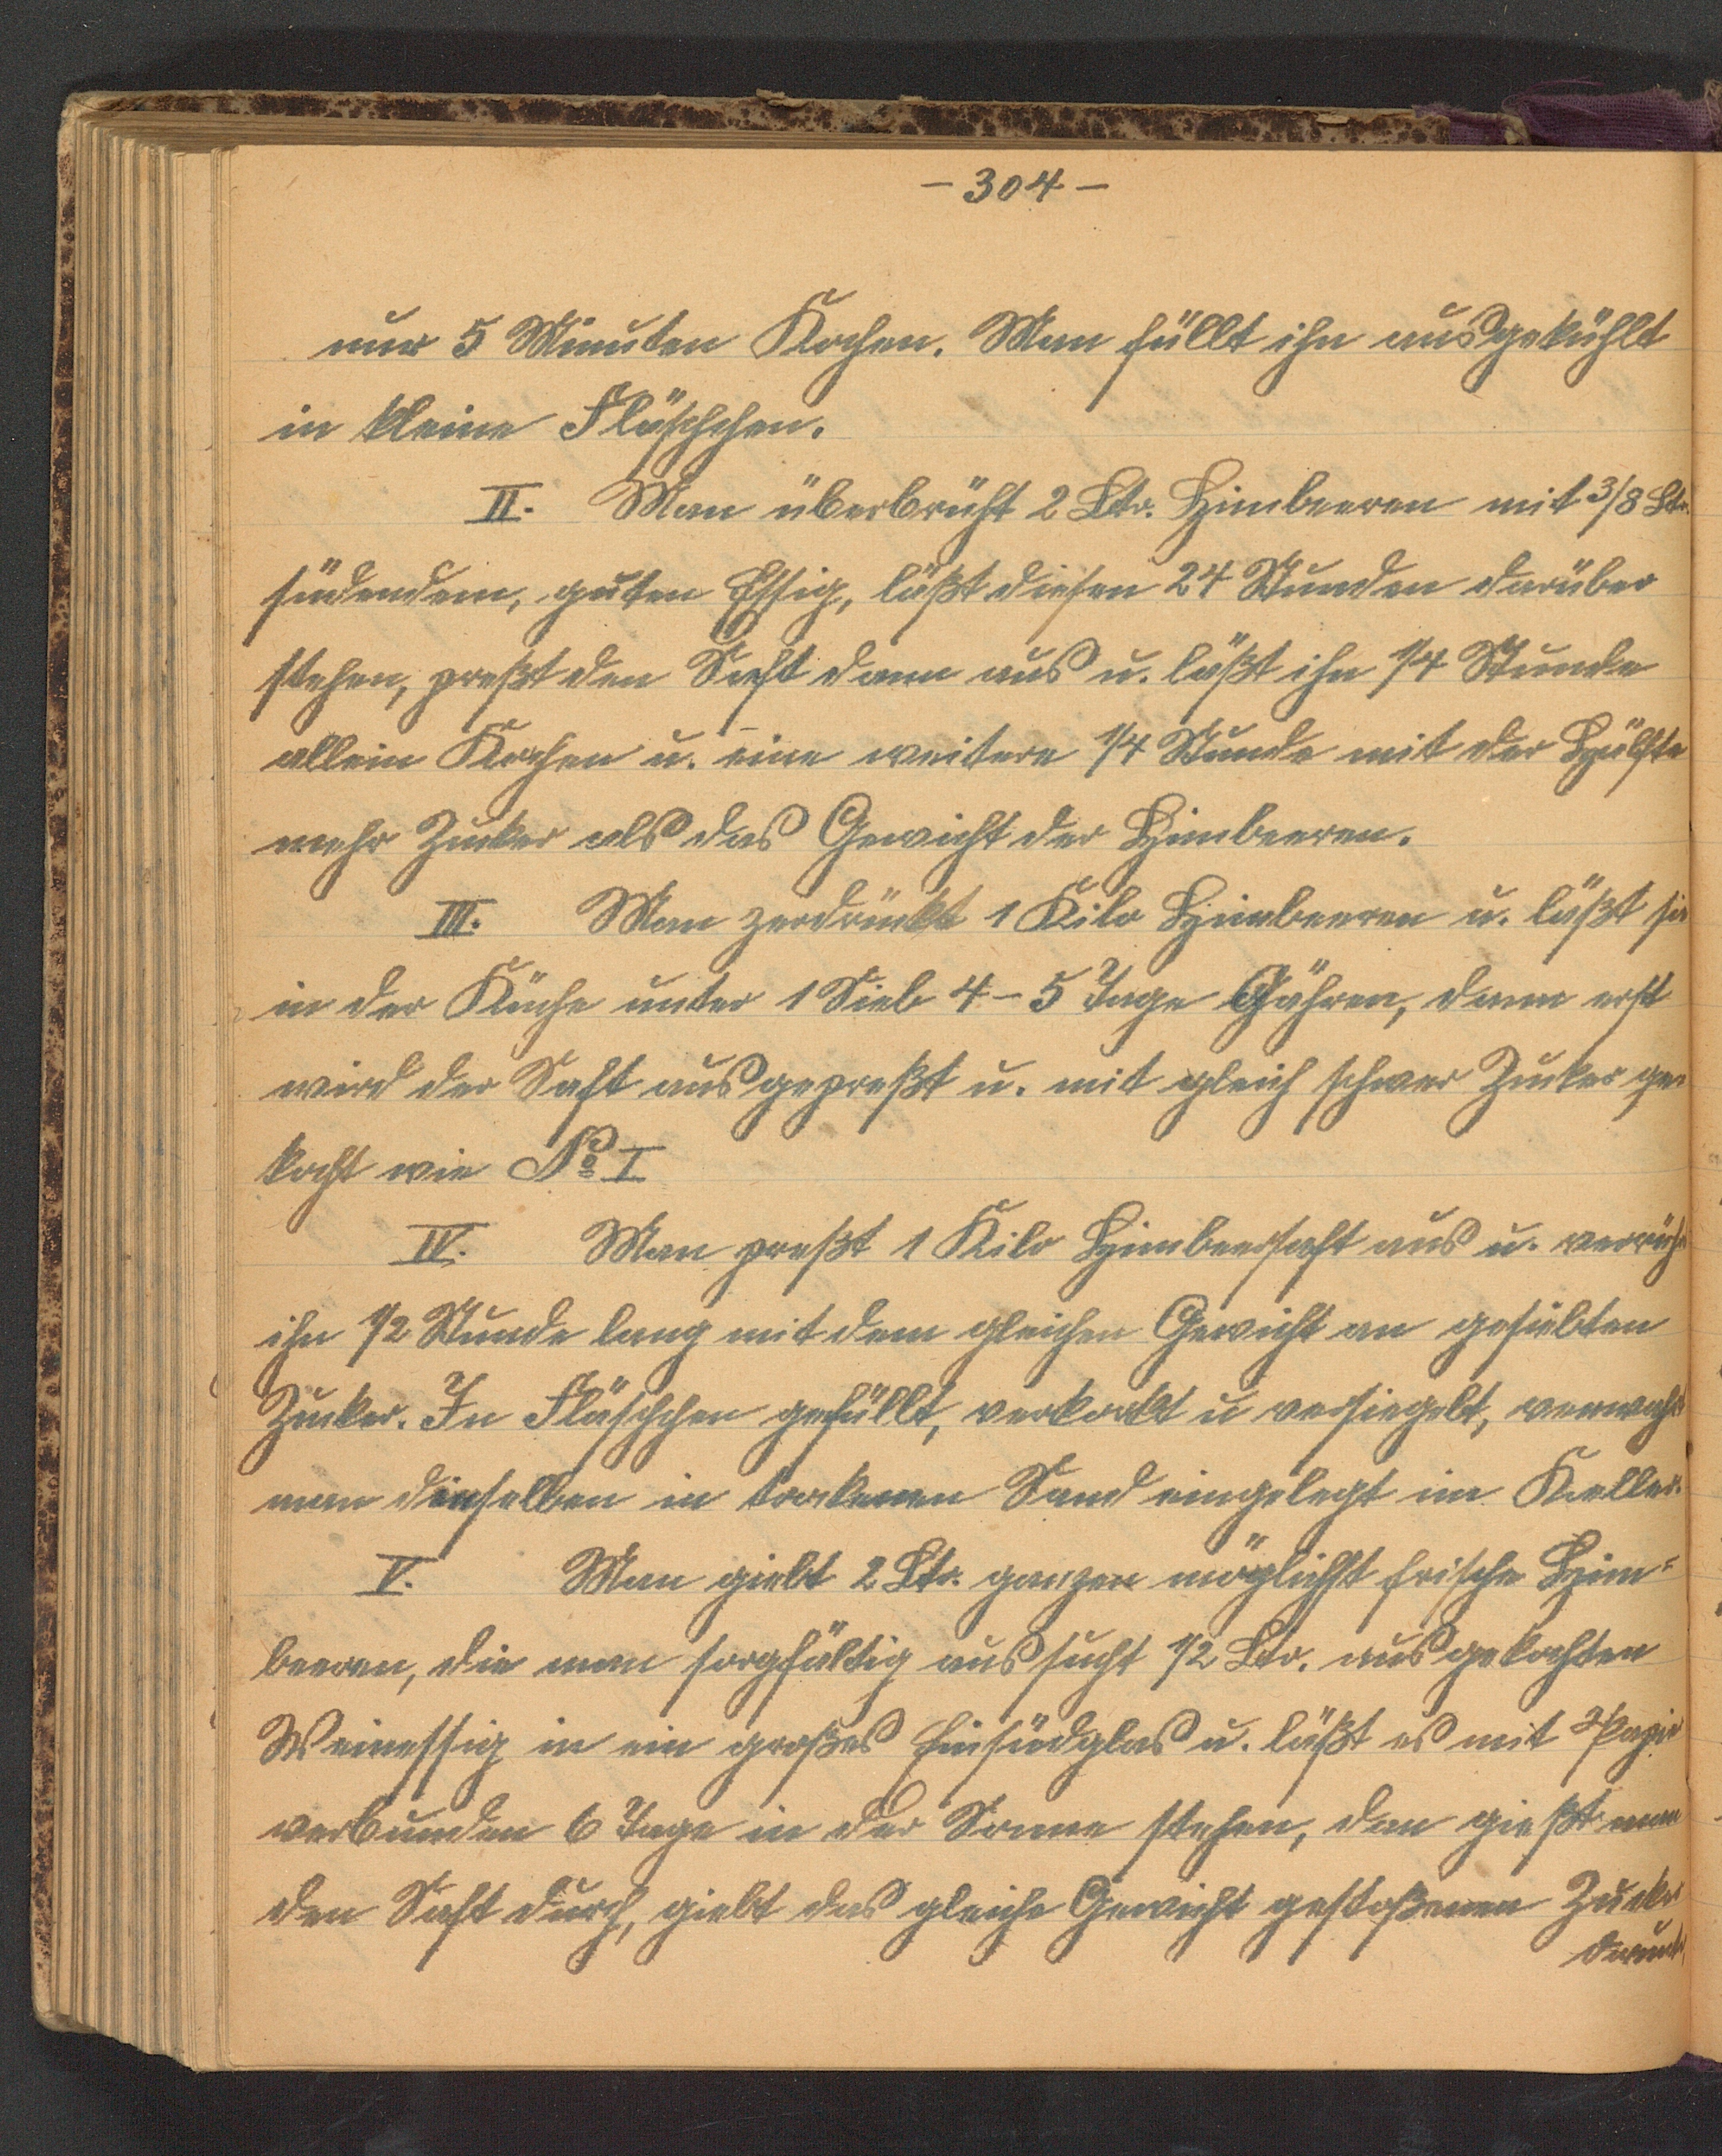 - 304 -
nur 5 Minuten Kochen. Man füllt ihn ausgekühlt
in kleine Fläschchen.
II. Man überbrüht 2 Ltr. Himbeeren mit 3/8 Ltr.
südendem, guten Essig, läßt diesen 24 Stunden darüber
stehen, preßt den Saft dann aus u. läßt ihn 1/4 Stunde
allein Kochen u. eine weitere 1/4 Stunde mit der Hälfte
mehr Zucker als das Gewicht der Himbeeren.
III. Man zerdrückt 1 Kilo Himbeeren u. läßt sie
in der Küche unter 1 Sieb 4-5 Tage Gähren, dann erst
wird der Saft ausgepreßt u. mit gleich schwer Zucker ge-
kocht wie No I
IV. Man preßt 1 Kilo Himbeersaft aus u. verrüh
ihn 1/2 Stunde lang mit dem gleichen Gewicht an gesiebten
Zucker. In Fläschchen gefüllt, verkorkt u versiegelt, verwahrt
man dieselben in trockenen Sand eingelegt im Keller.
V. Man giebt 2 Ltr. ganzen möglichst frische Him=
beeren, die man sorgfältig aussucht 1/2 Ltr. ausgekochten
Weinessig in ein großes Einsüdglas u. läßt es mit Papier
verbunden 6 Tage in der Sonne stehen, dan gießt man
den Saft durch, giebt das gleiche Gewicht gestoßenen Zucker
darunter